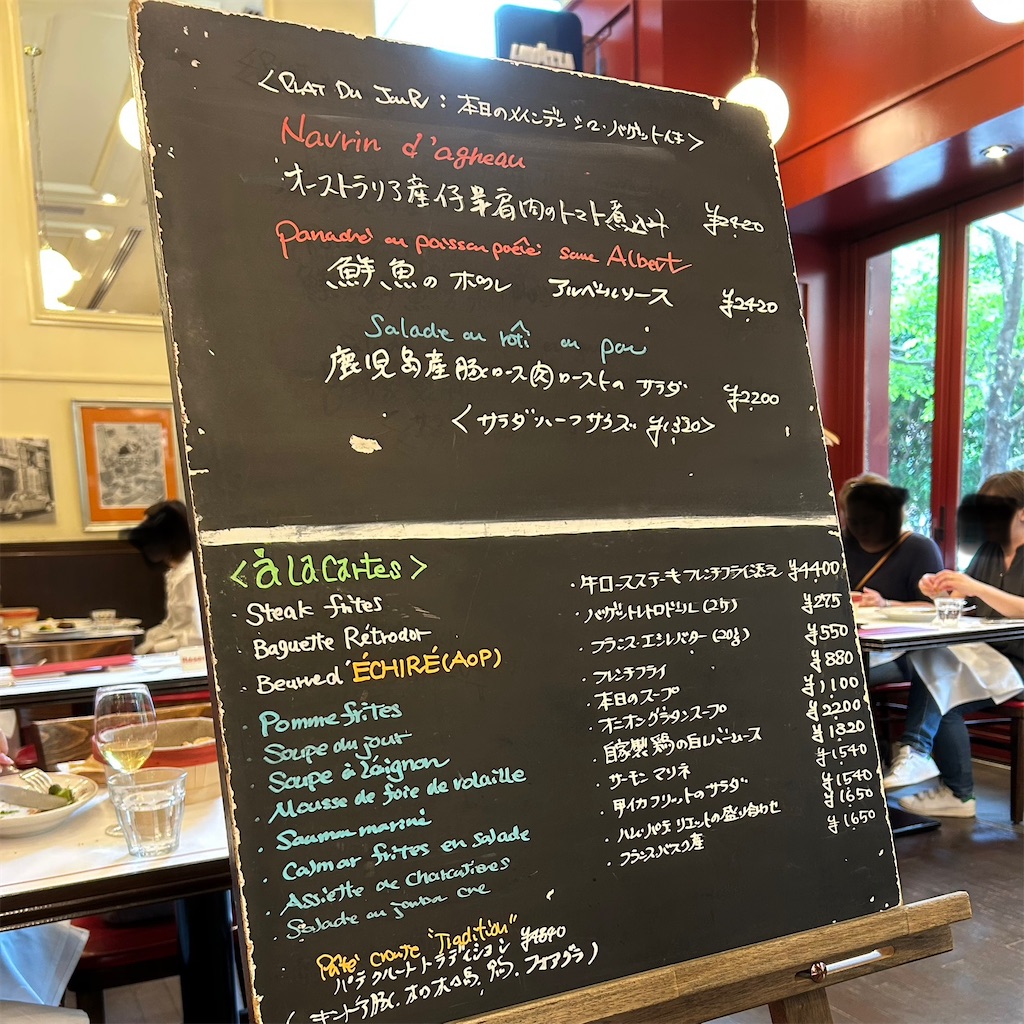 LAVAZZA
<PLAT DU JOUR : 本日のメインディシュ・バゲット付き>
Navrin d'agneau
オーストラリア産仔羊肩肉のトマト煮込み ¥2420
ou poisson poêlé sauce Albert
鮮魚のポワレ アルベールソース ¥2420
Salade au rôti au
鹿児島産豚ロース肉ローストの サラダ ¥2200
<サラダハーフサイズ ¥1320>
<à la cartes>
Steak frites ・牛ロースステーキ フレンチフライ添え ¥4400
Baguette Rétrodor ・バゲットレトロドール (2ケ) ¥275
Beurre d'ÉCHIRÉ(AOP) ・フランス・エシレバター (20g) ¥550
・Pomme frites ・フレンチフライ 880
・Soupe du jour ・本日のスープ 1100
・Soupe à l'oignon ・オニオングラタンスープ 2200
・Mousse de foie de volaille ・自家製鶏の白レバームース ¥1320
・Saumon mariné ・サーモン マリネ ¥1540
・Calmar frites en salade ・甲イカフリットのサラダ ¥1540
・Assiette de Charcuteries ・ハム・パテ リエットの盛り合わせ ¥1650
・Salade au jambon cru ・フランスバスク産 ¥1650
Pâté croute "Tradition"
パテクルート トラディション
豚, フォアグラ)